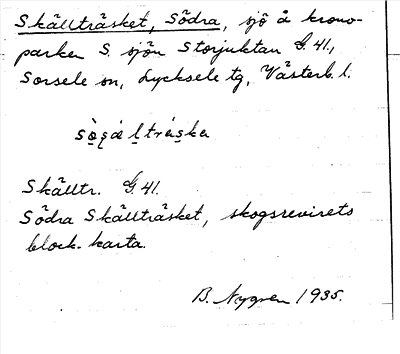 Skällträsket, Södra, sjö å krono-
parken S. sjön Storjuktan G. 41.,
Sorsele sn, Lycksele tg, Västerb. l.
Skälltr. G 41.
Södra Skällträsket, skogsrevirets
block-karta.
B. Nygren 1935.